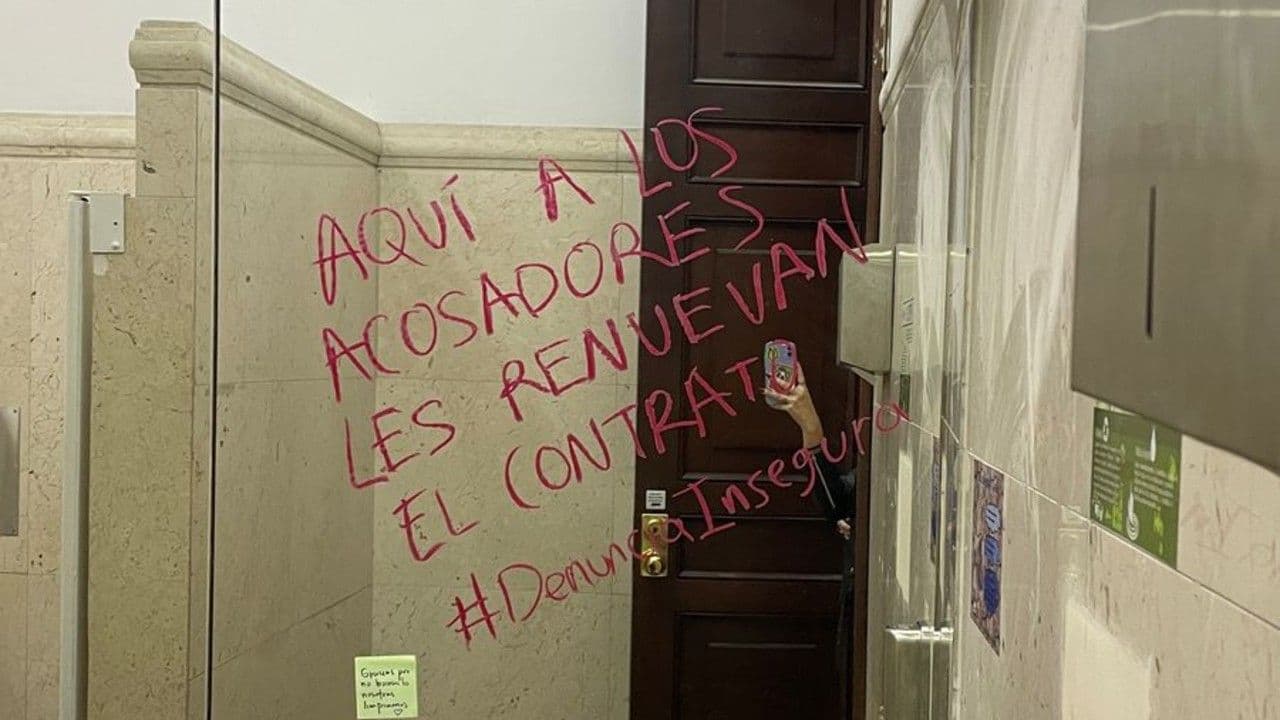 AQUÍ A LOS
ACOSADORES
LES RENUEVAN
EL CONTRATO
#DenunciaInsegura
Gracias por
no borrarlo
nosotras
limpiamos